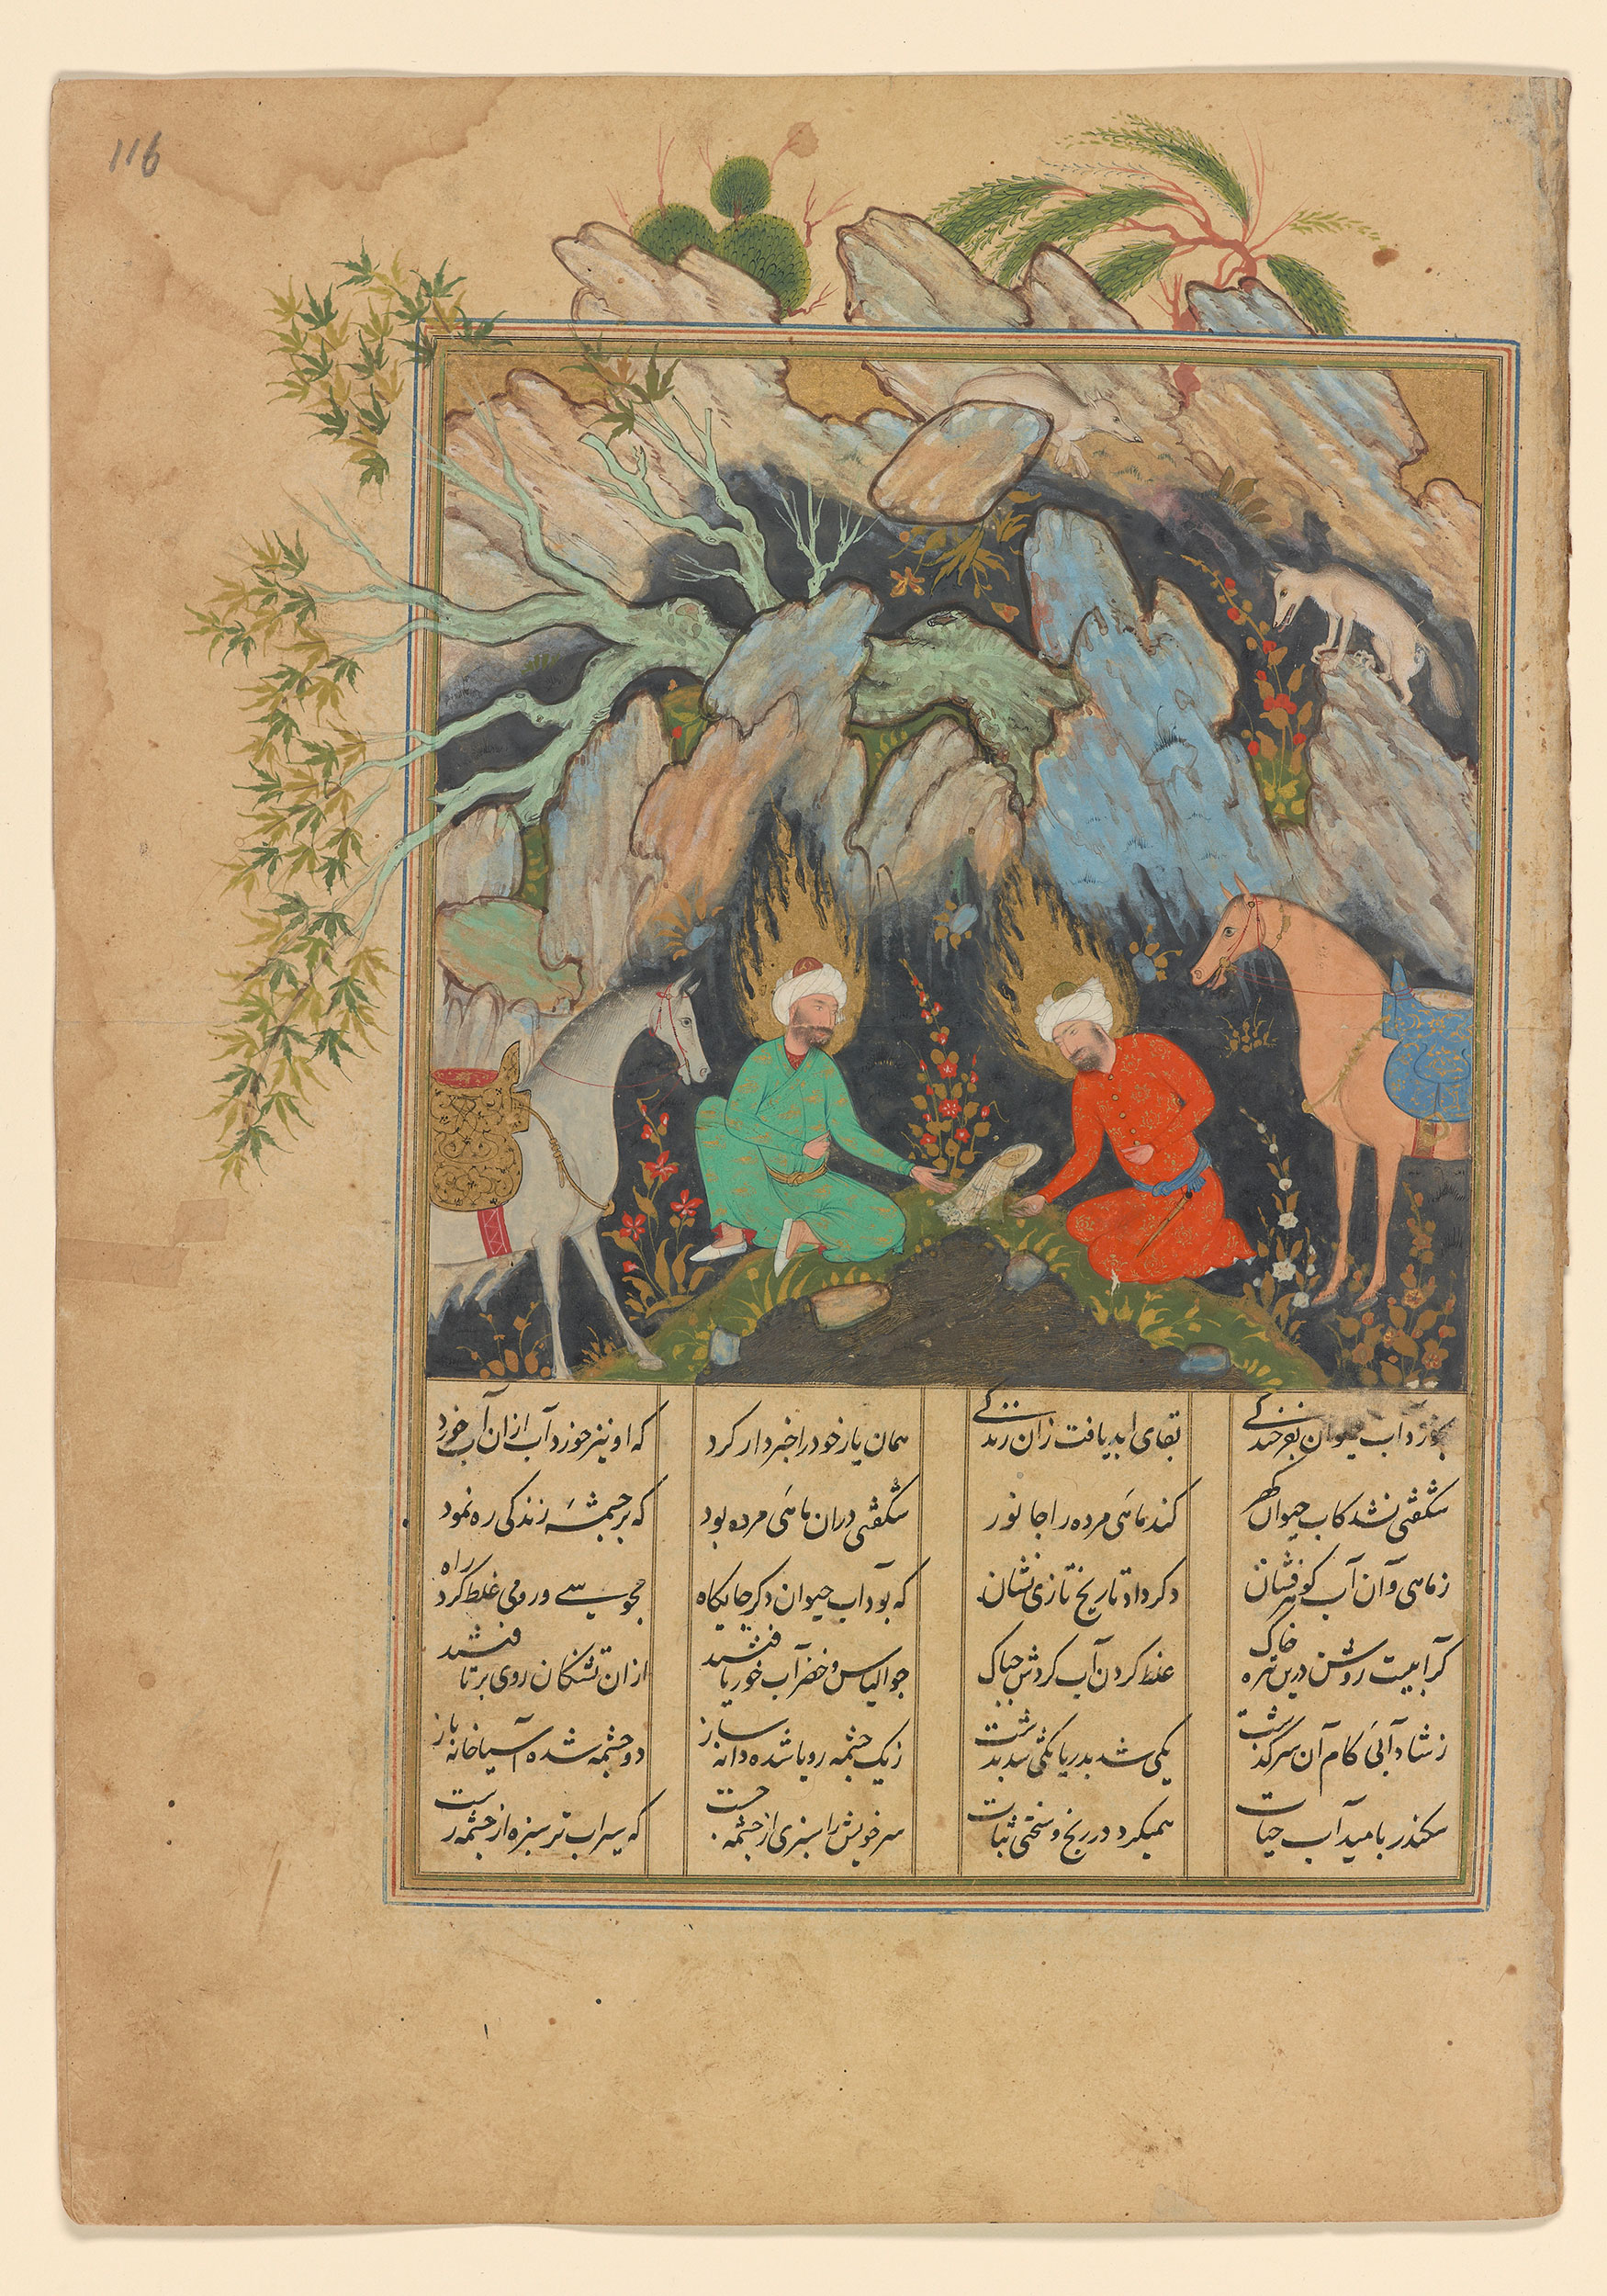 116
بخورد آب حیوان بفرخندگی بقای ابد یافت زان زندگی همان یار خود را خبردار کرد که او نیز خورد آب ازان آب خورد
شگفتی نشد کاب حیوان گهر کند ماهی مرده را جانور شگفتی دران ماهی مرده بود که بر چشمه زندگی ره نمود
ز ماهی و آن آب گوهر فشان دگر داد تاریخ تازی نشان که بود آب حیوان دگر جایگاه مجوسی و رومی غلط کرد راه
گر آبیست روشن درین تیره خاک غلط کردن آب گردش چباک چو الیاس و خضر آب خور یافتند ازان تشنگان روی برتافتند
ز شادابی کام آن سرگذشت یکی شد بدریا یکی شد بدشت ز یک چشمه رویا شده دانه ساز دو چشمه شده آسیاخانه باز
سکندر بامید آب حیات همیکرد در رنج و سختی ثبات سر خویش را سبزی از چشمه جست که سیراب تر سبزه از چشمه رست